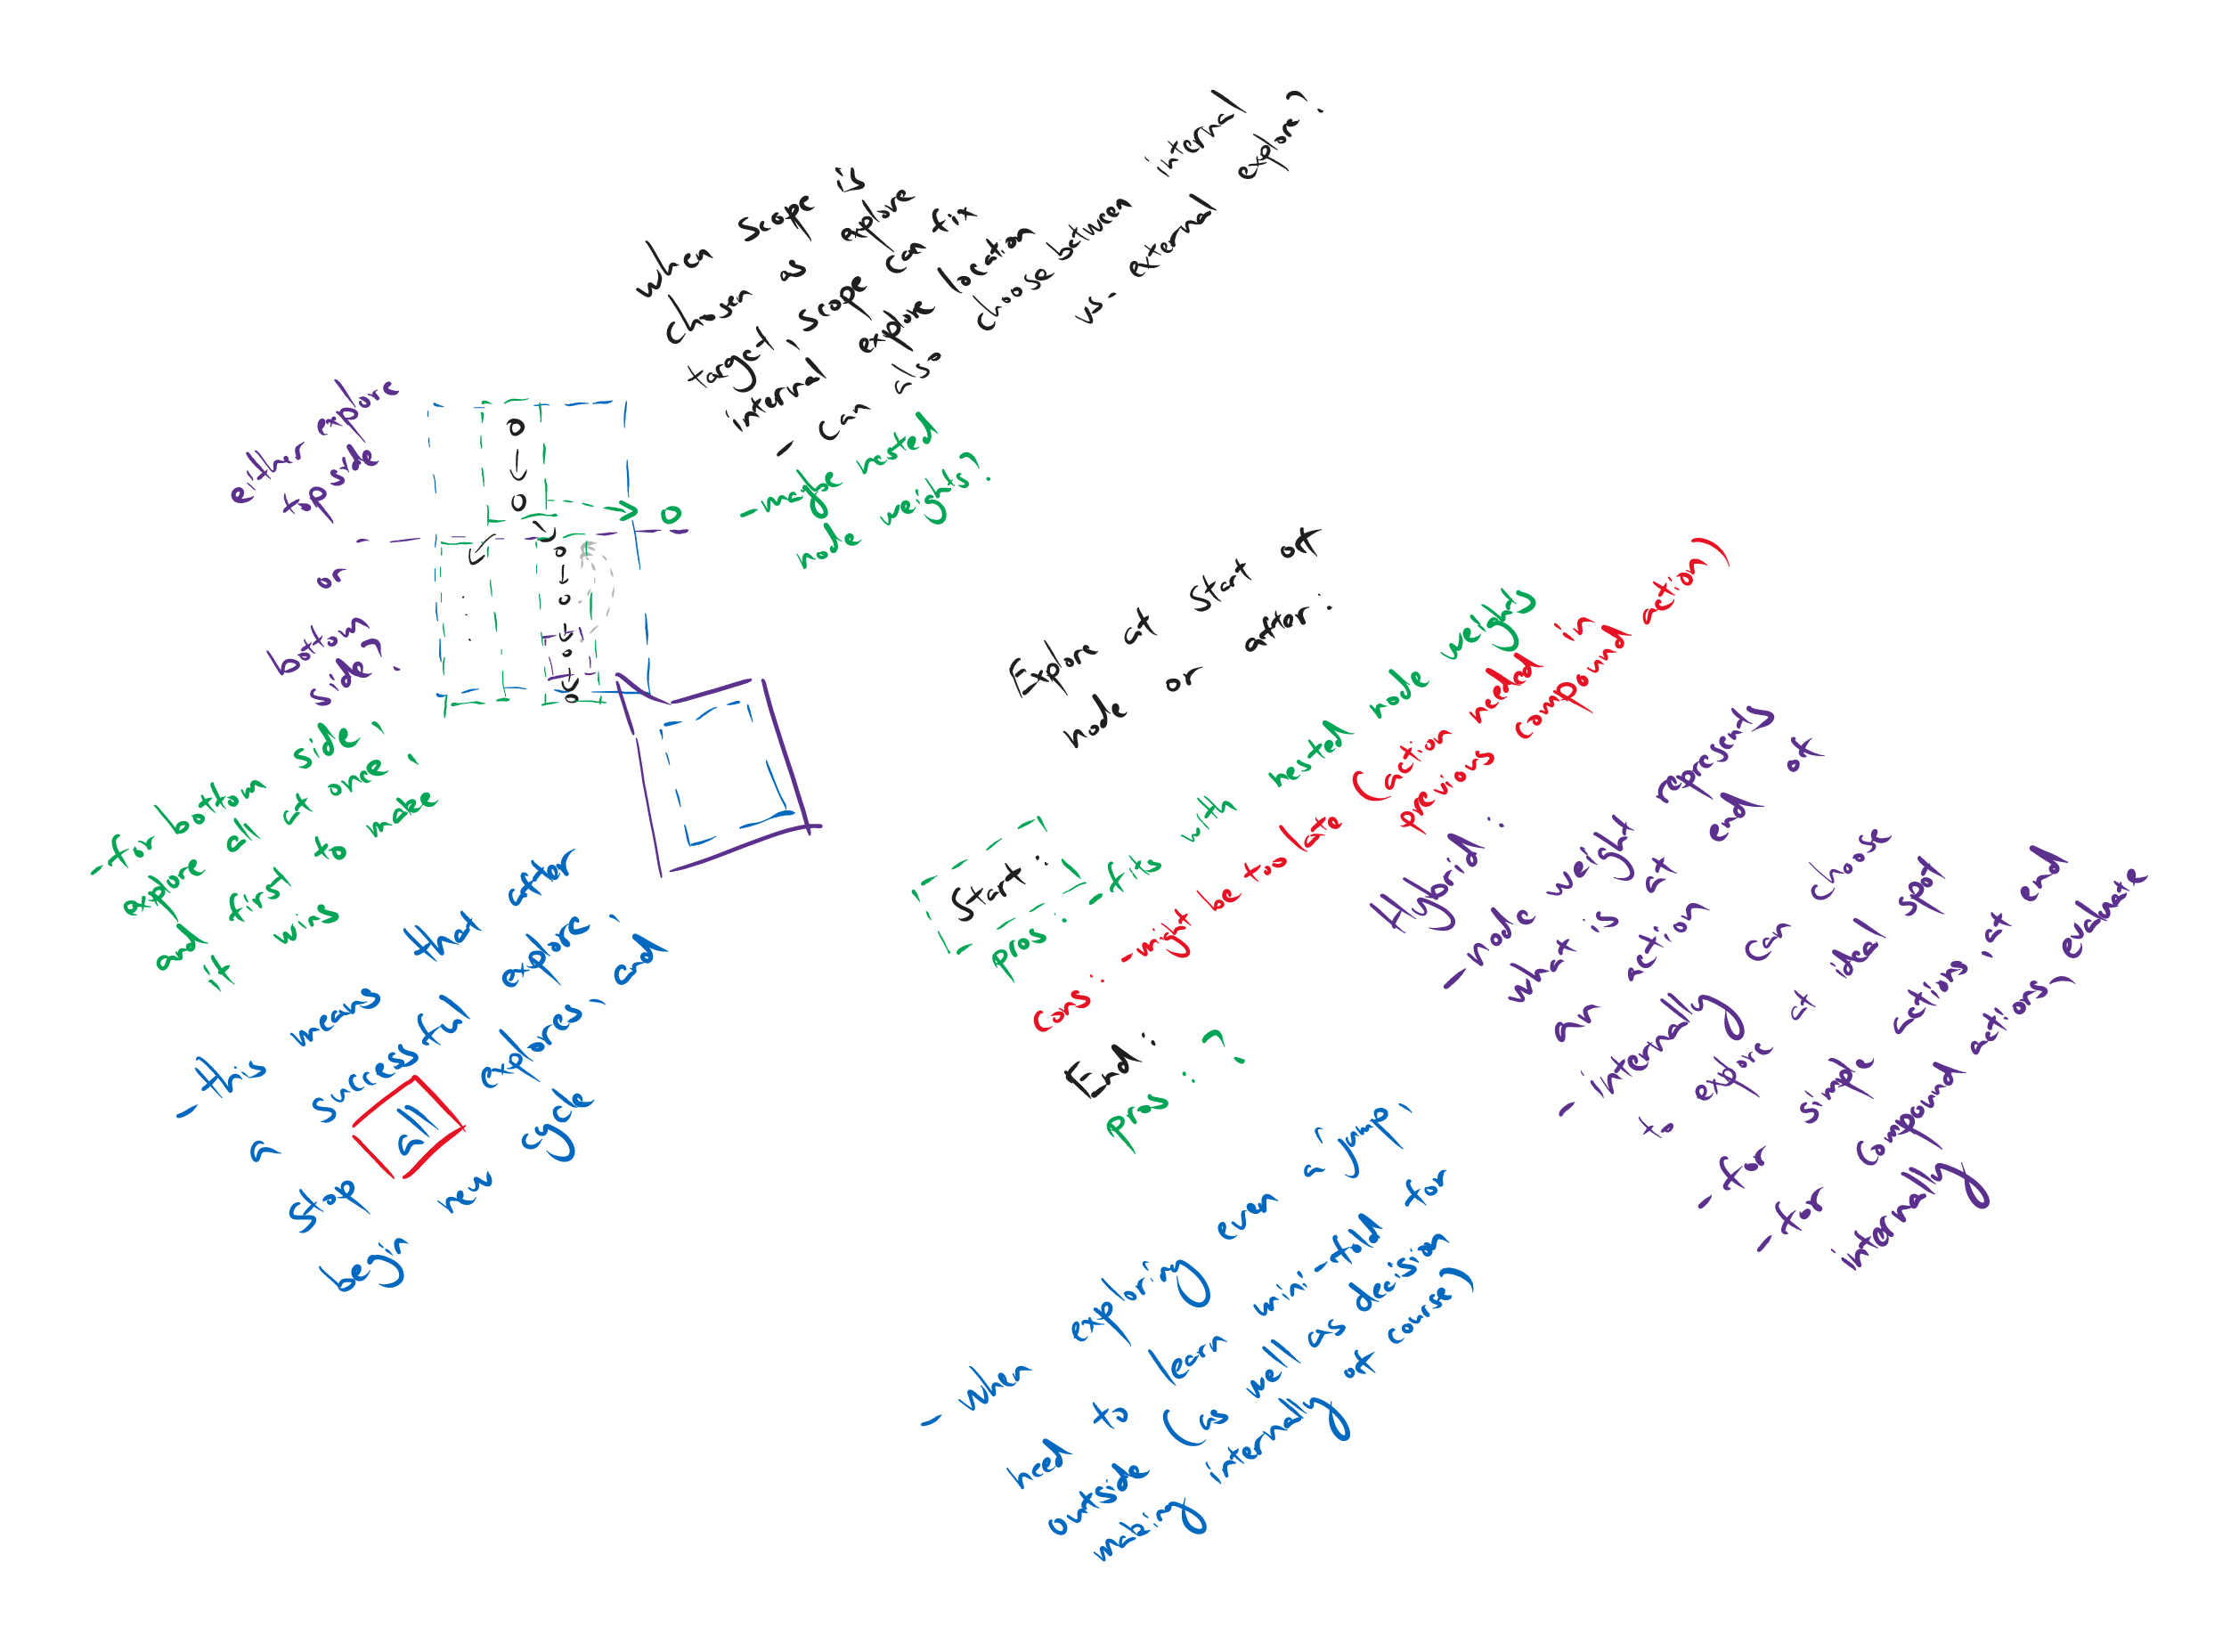 when scope is
chosen as explore
target, scope can fit
internal explore location
- can also choose between internal
vs. external explore?
- maybe nested
node weights?
either explore
top side
or
bottom
side.
- for bottom side,
explore all at once,
and first to make
it wins
- this means that other
successful explore,
stop all explores, and
begin new cycle
Explore at start of
node or after:
Start:
pros: - fits with nested node weights
cons: - might be too late (action needed in
previous compound action)
End:
pros: ?
Hybrid:
- node weight represents
what is at end of
an action
- internally can choose
to explore at ideal spot
- for simple actions, at end
- for compound actions, evaluate
internally
- when exploring even a 'jump',
need to learn mini-fold for
outside (as well as decision
making internally of course)